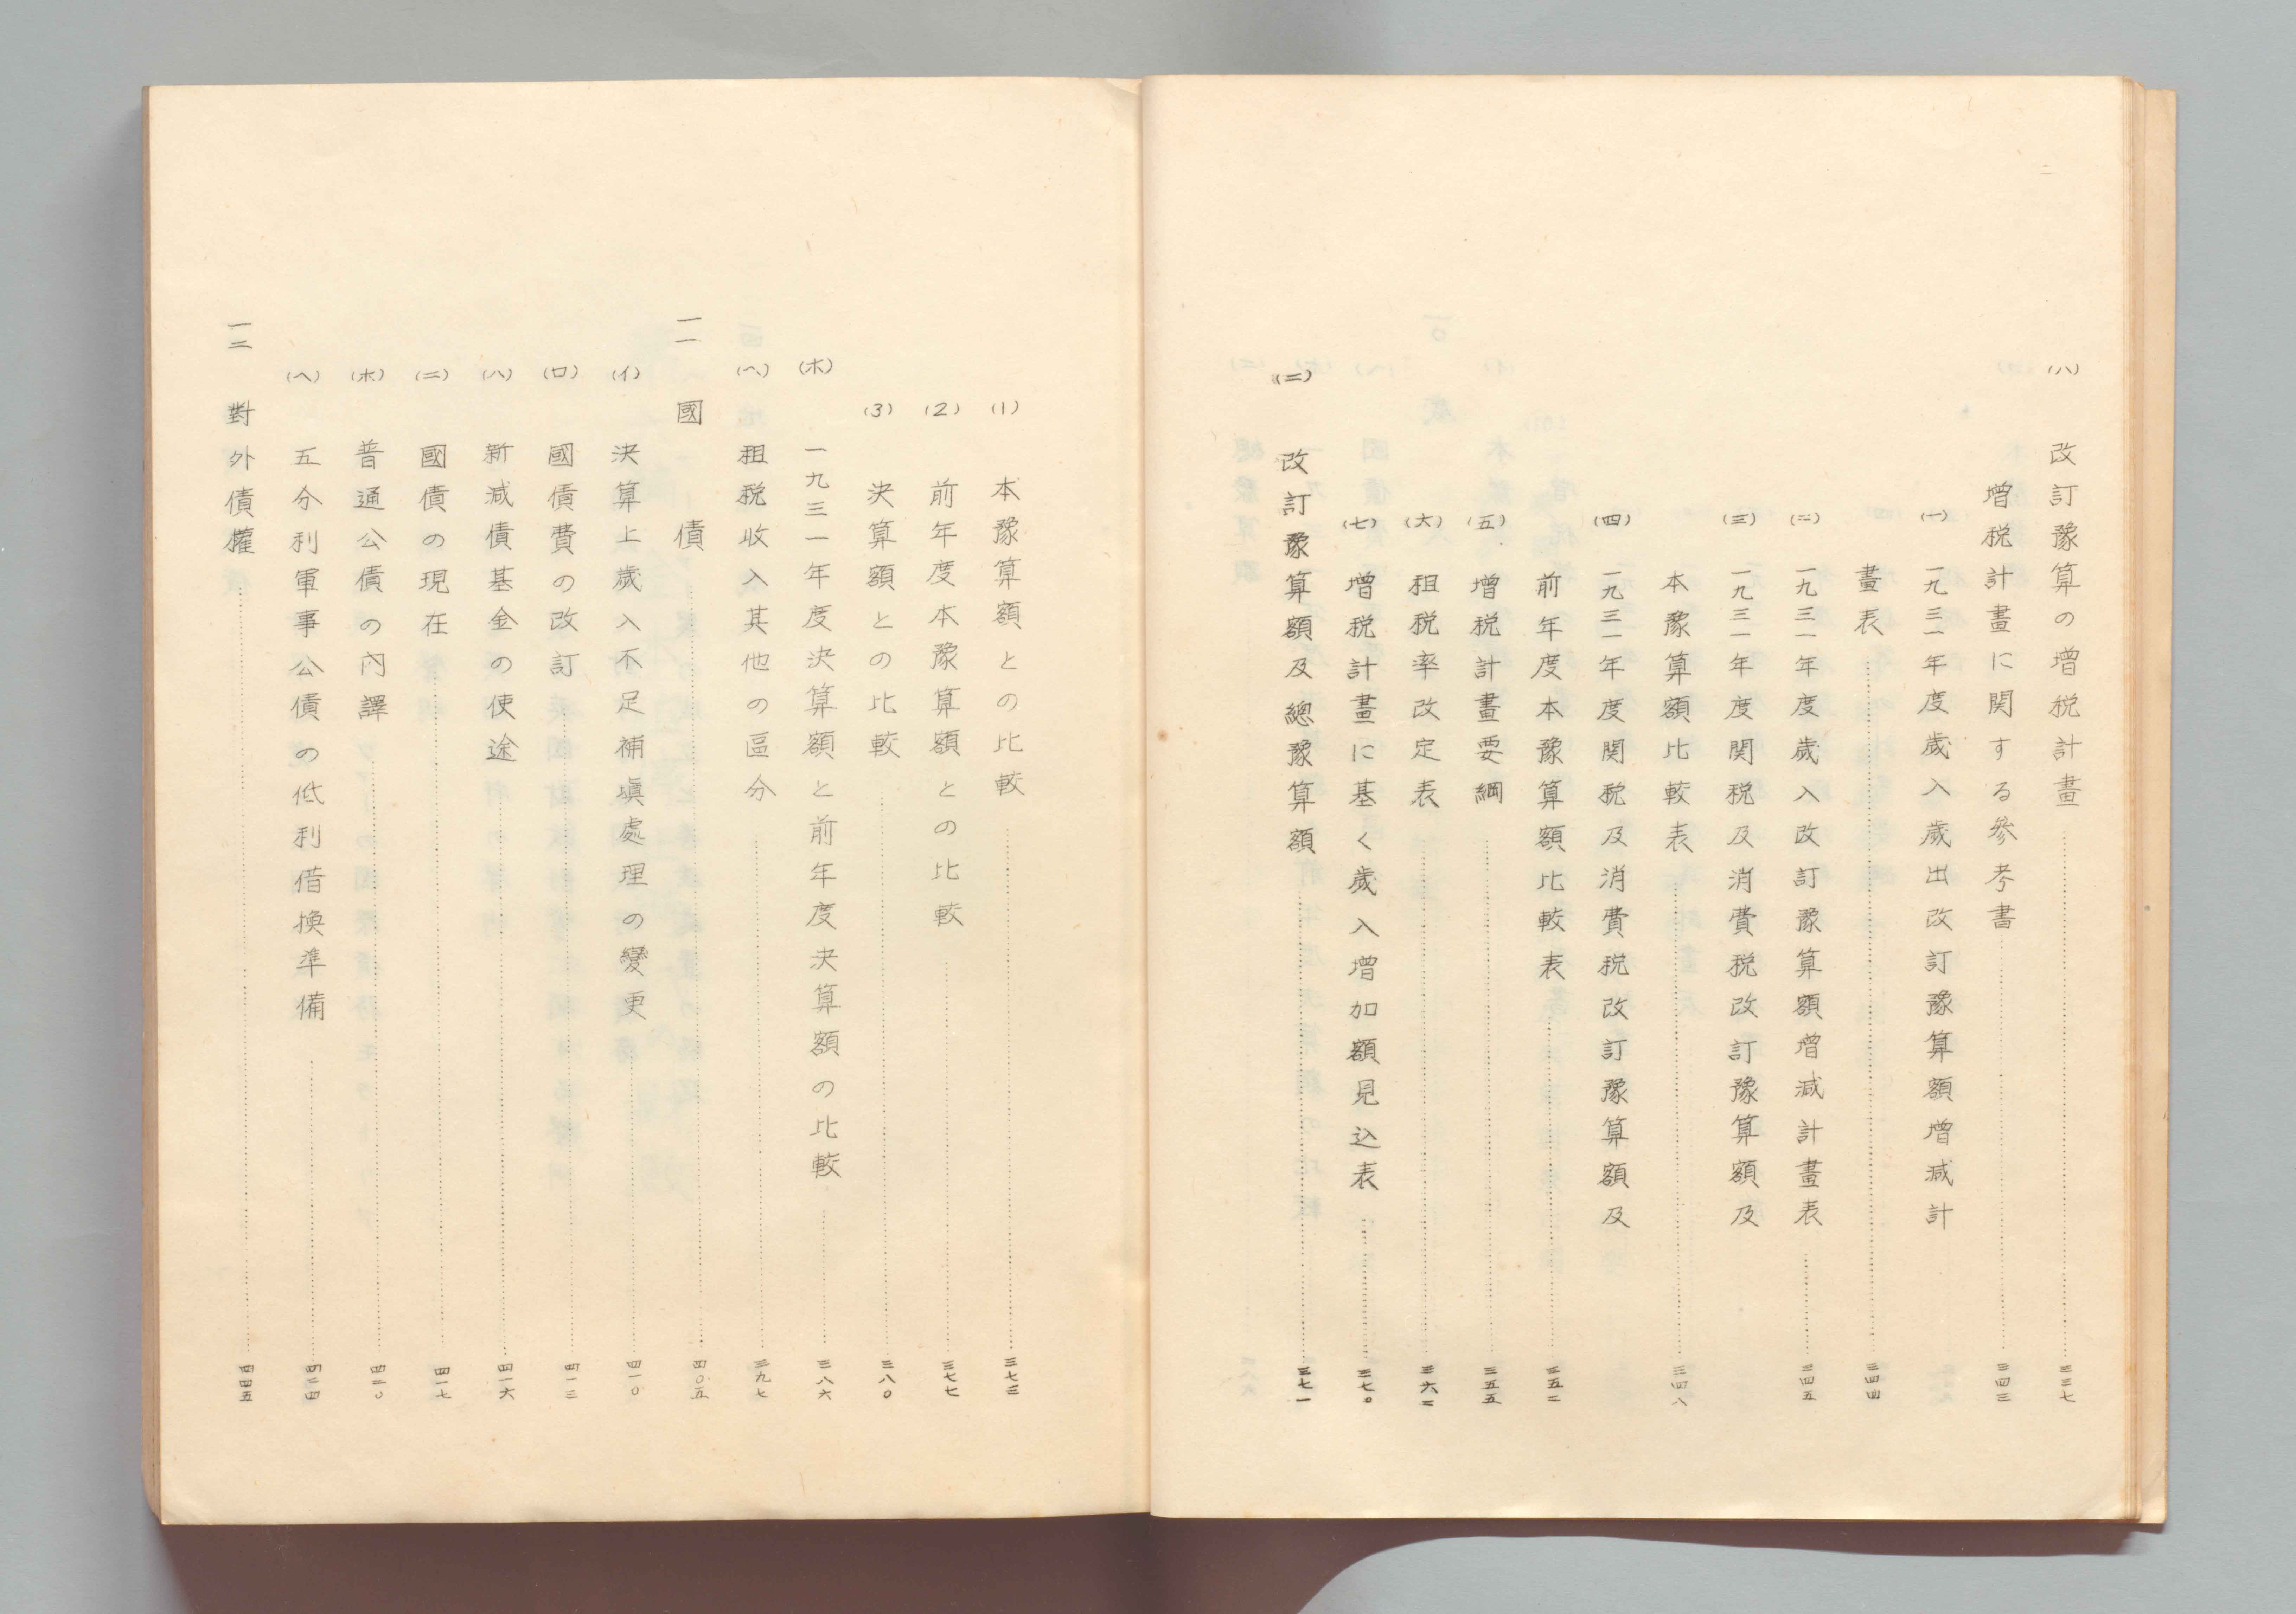 二
(ハ) 改訂豫算の增税計畫 三三七
增税計畫に関する参考書 三四三
(一) 一九三一年度歲入歲出改訂豫算額增減計
畫表 三四四
(二) 一九三一年度歲入改訂豫算額增減計畫表 三四五
(三) 一九三一年度関税及消費税改訂豫算額及
本豫算額比較表 三四八
(四) 一九三一年度関税及消費税改訂豫算額及
前年度本豫算額比較表 三五二
(五) 增税計畫要綱 三五五
(六) 租税率改定表 三六二
(七) 增税計畫に基く歲入增加額見込表 三七〇
(ニ) 改訂豫算額及總豫算額 三七一
(1) 本豫算額との比較 三七三
(2) 前年度本豫算額との比較 三七七
(3) 決算額との比較 三八〇
(ホ) 一九三一年度決算額と前年度決算額の比較 三八六
(ヘ) 租税收入其他の區分 三九七
一一 國債 四〇五
(イ) 決算上歲入不足補塡處理の變更 四一〇
(ロ) 國債費の改訂 四一三
(ハ) 新減債基金の使途 四一六
(ニ) 國債の現在 四一七
(ホ) 普通公債の內譯 四二〇
(ヘ) 五分利軍事公債の低利借換準備 四二四
一二 對外債權 四四五